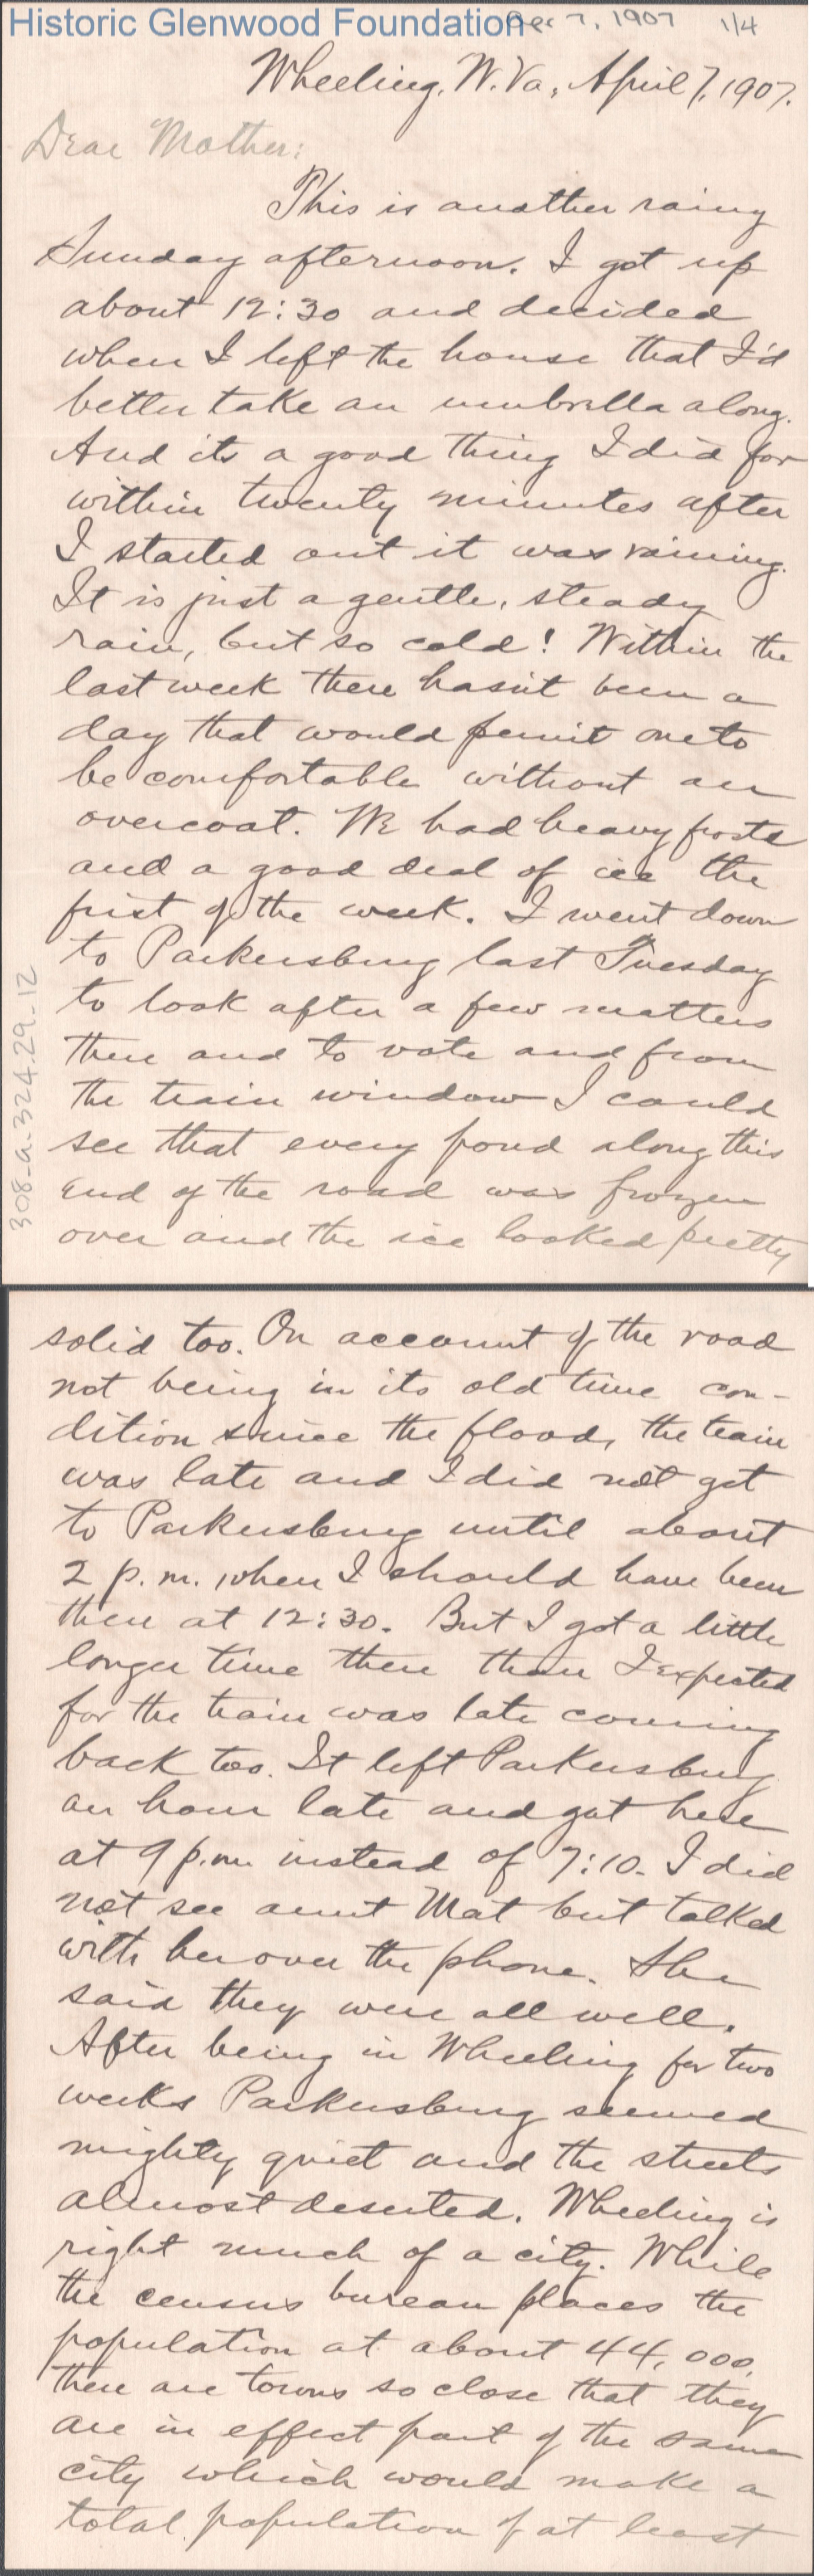 Historic Glenwood Foundation
Apr 7, 1907 1/4
Wheeling, W. Va., April 7, 1907.
Dear Mother:
This is another rainy
Sunday afternoon. I got up
about 12:30 and decided
when I left the house that I'd
better take an umbrella along.
And its a good thing I did for
within twenty minutes after
I started out it was raining.
It is just a gentle, steady
rain, but so cold! Within the
last week there hasn't been a
day that would permit one to
be comfortable without an
overcoat. We had heavy frosts
and a good deal of ice the
first of the week. I went down
to Parkersburg last Tuesday
to look after a few matters
there and to vote and from
the train window I could
see that every pond along this
end of the road was frozen
over and the ice looked pretty
308-a.324.29.12
solid too. On account of the road
not being in its old time con-
dition since the flood, the train
was late and I did not get
to Parkersburg until about
2 p.m. when I should have been
there at 12:30. But I got a little
longer time there than I expected
for the train was late coming
back too. It left Parkersburg
an hour late and got here
at 9 p.m. instead of 7:10. I did
not see aunt Mat but talked
with her over the phone. She
said they were all well.
After being in Wheeling for two
weeks Parkersburg seemed
mighty quiet and the streets
almost deserted. Wheeling is
right much of a city. While
the census bureau places the
population at about 44,000,
there are towns so close that they
are in effect part of the same
city which would make a
total population of at least